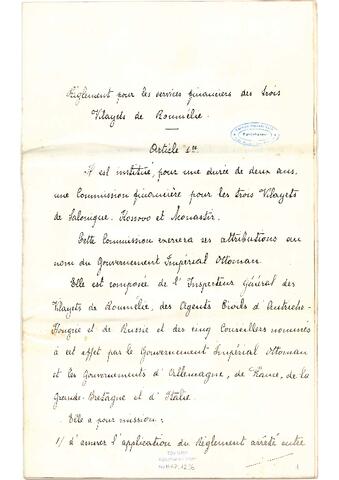 Règlement pour les services financiers des trois
Vilayets de Roumélie.
Article 1er
Il est institué, pour une durée de deux ans,
une Commission financière pour les trois Vilayets
de Salonique, Kossovo et Monastir.
Cette Commission exercera ses attributions au
nom du Gouvernement Impérial Ottoman.
Elle est composée de l'Inspecteur Général des
Vilayets de Roumélie, des Agents Civils d'Autriche-
Hongrie et de Russie et des cinq Conseillers nommés
à cet effet par le Gouvernement Impérial Ottoman
et les Gouvernements d'Allemagne, de France, de la
Grande-Bretagne et d'Italie.
Elle a pour mission:
1/ d'assurer l'application du Règlement arrêté entre
1